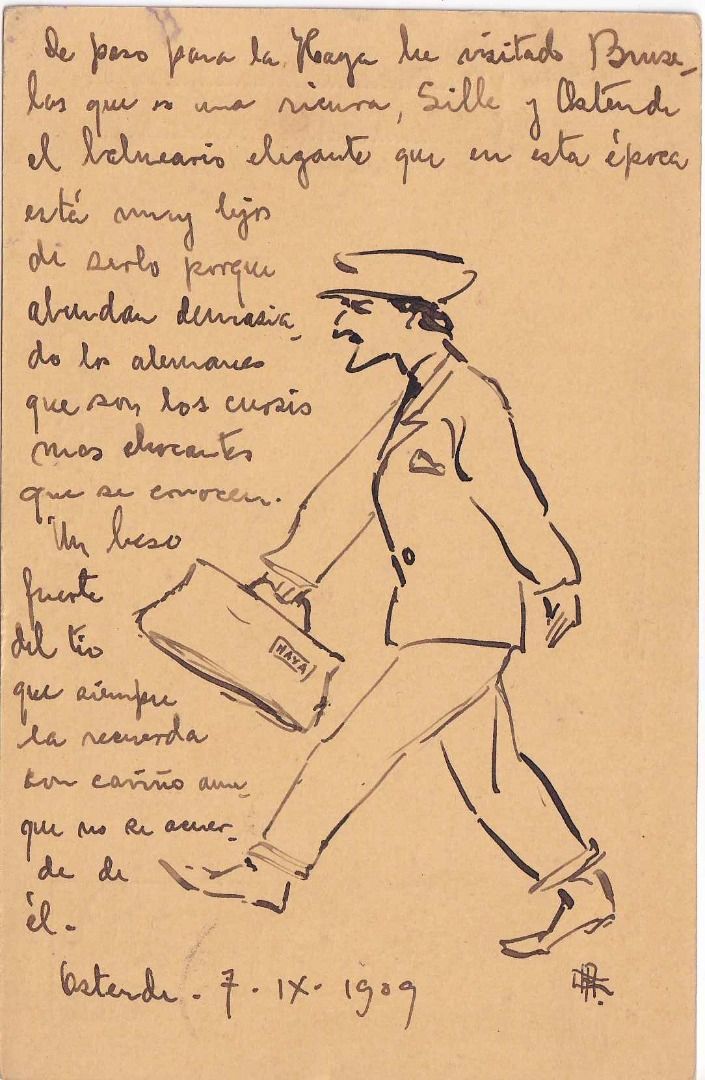 De paso para la Haya he visitado Bruse-
las que es una ricura, Sille y Ostende
el balneario elegante que en esta época
está muy lejos
de serlo porque
abundan demasia-
do los alemanes
que son los cursis
mas chocantes
que se conocen.
Un beso
fuerte
del tío
que siempre
la recuerda
con cariño aun-
que no se acuer-
de de
él.
HAYA
Ostende. 7. IX. 1909